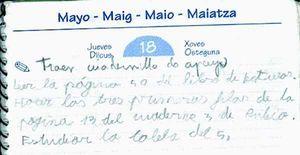 Mayo - Maig - Maio - Maiatza
Jueves Dijous 18 Xoves Osteguna
Traer cuadernillo de apoyo
Leer la página 50 de libro de lecturas.
Hacer las tres primeras filas de la
página 13 del cuaderno 3 de
Estudiar la tabla del 5,